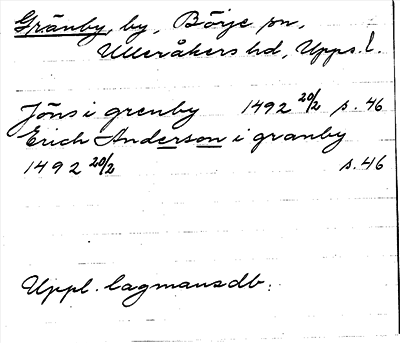 Gränby, by, Börje sn,
Ulleråkers hd, Upps. l.
Jöns i grenby 1492 20/2 s. 46
Erich Anderson i granby
1492 20/2 s. 46
Uppl. lagmansdb.